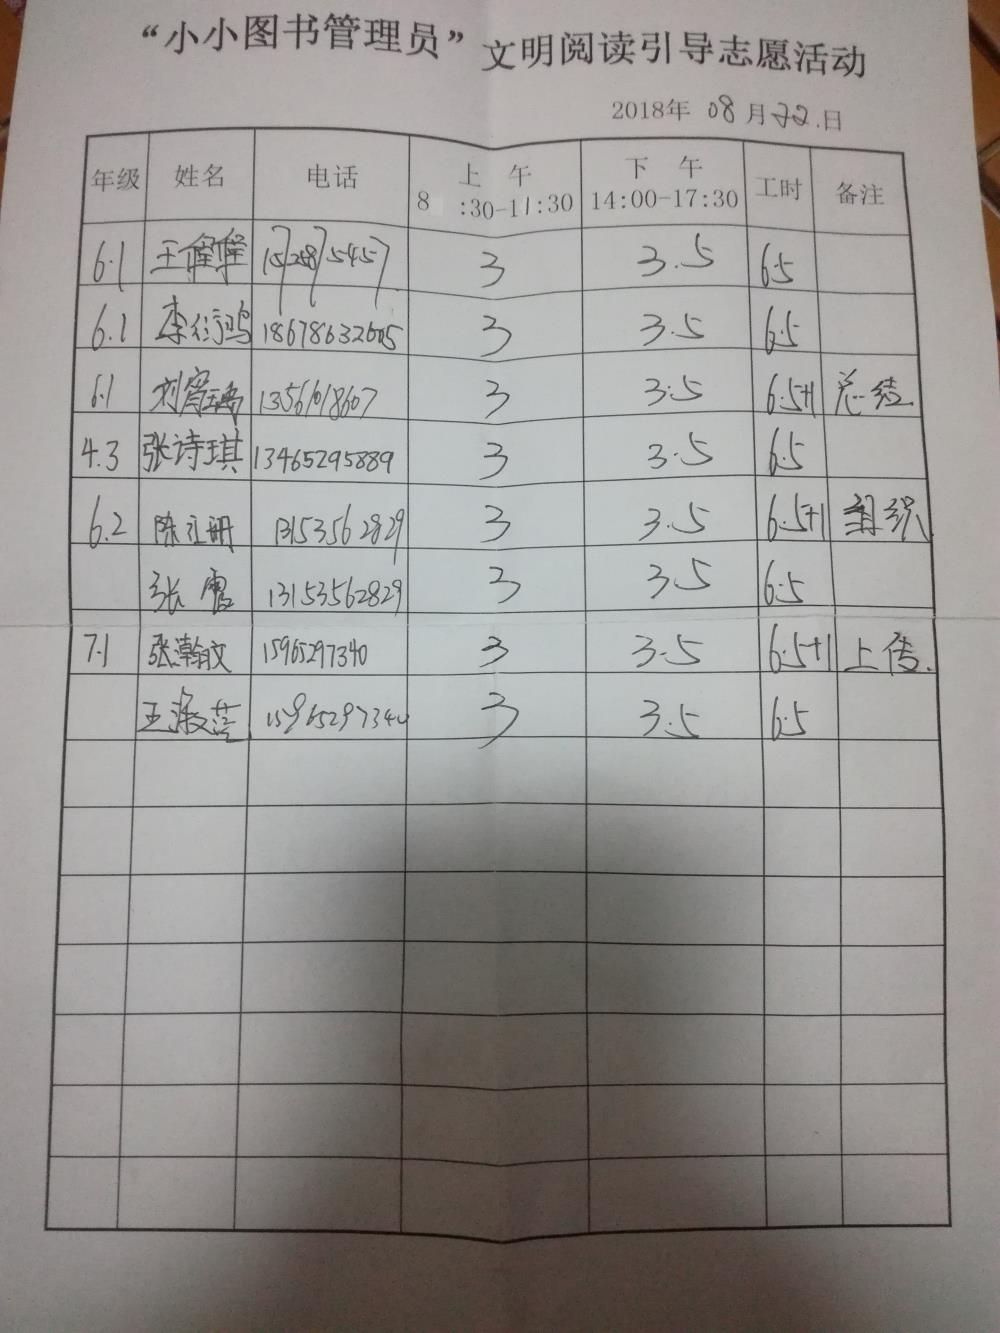 “小小图书管理员”文明阅读引导志愿活动
2018年 08 月 22.日
年级 姓名 电话 上 午 8 :30-11:30 下 午 14:00-17:30 工时 备注
6.1 王 3 3.5 6.5
6.1 李衍鸿 18678632605 3 3.5 6.5
6.1 刘霄瑀 13561018607 3 3.5 6.5+1 总结
4.3 张诗琪 13465295889 3 3.5 6.5
6.2 陈 13153562829 3 3.5 6.5+1 组织
张 13153562829 3 3.5 6.5
7.1 张瀚文 15965297340 3 3.5 6.5+1 上传.
王 15965297340 3 3.5 6.5